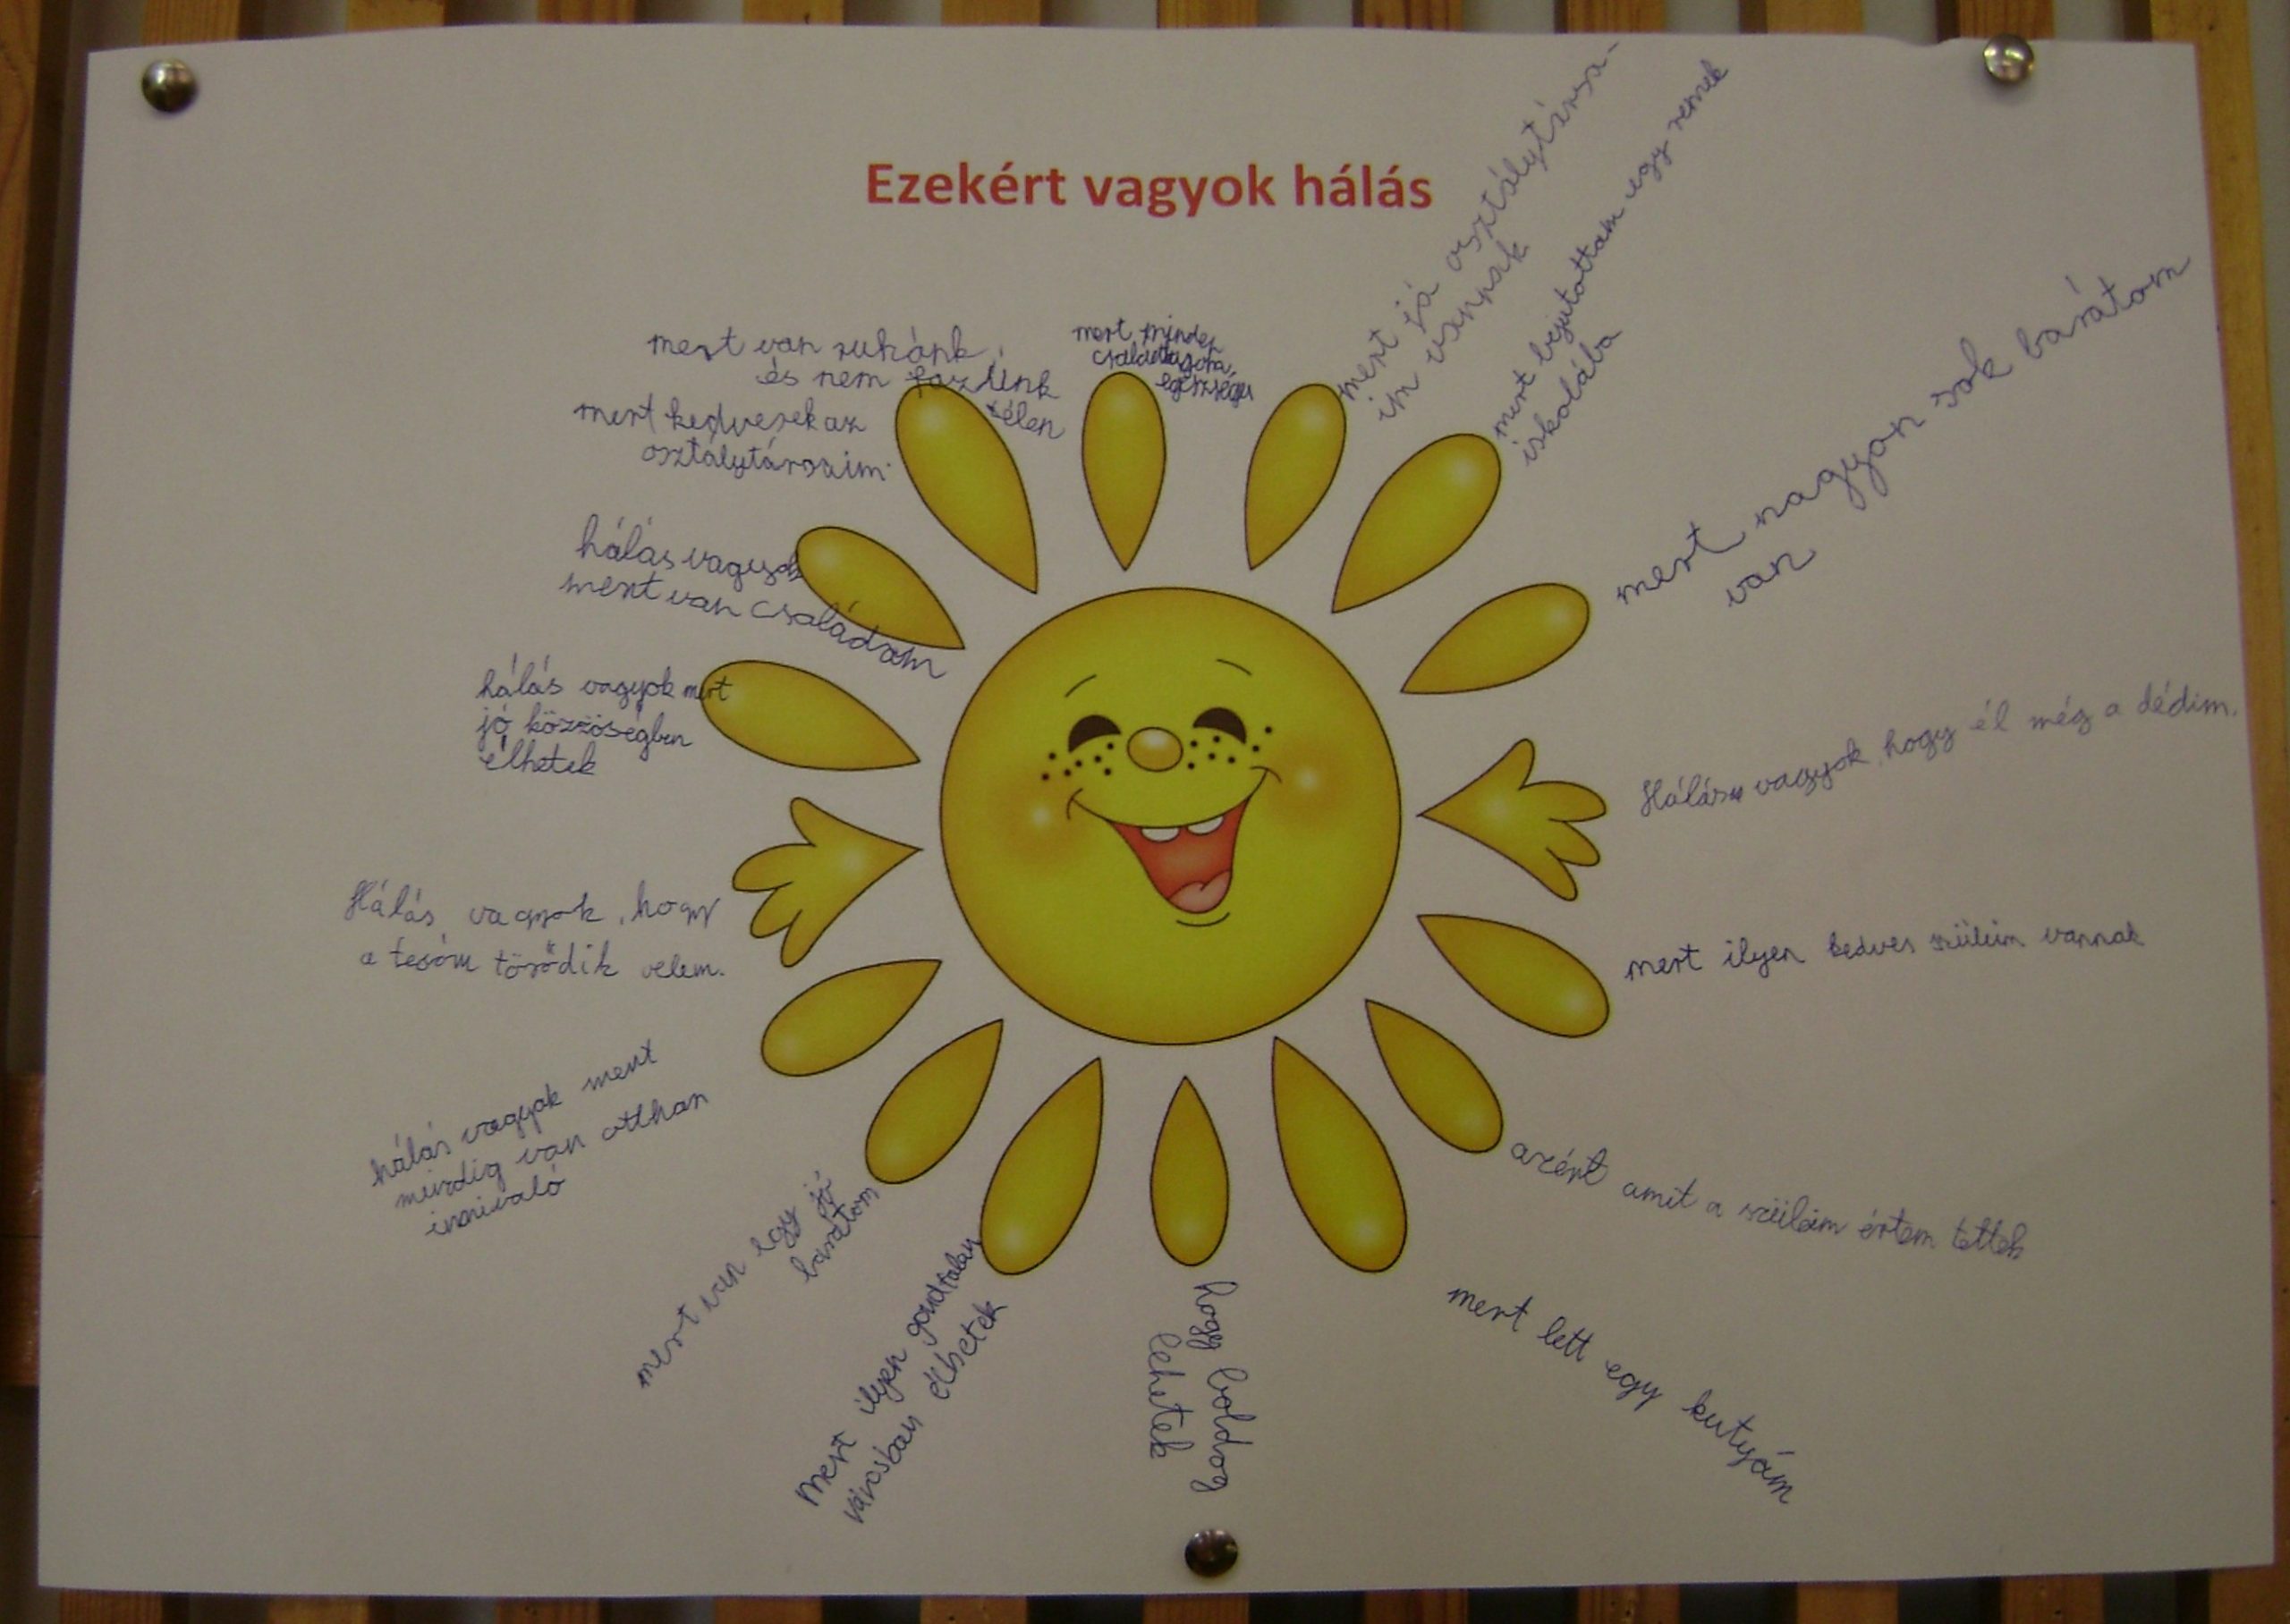 Ezekért vagyok hálás
mert van ruhánk,
és nem fázunk
télen
mert kedvesek az
osztálytársaim.
hálás vagyok
mert van családom
hálás vagyok mert
jó közzöségben
élhetek
Hálás vagyok, hogy
a tesóm törődik velem.
hálás vagyok mert
mindig van otthan
innivaló
mert van egy jó
barátom
mert ilyen gondtalan
városban élhetek
hogy boldog
lehetek
mert lett egy kutyám
azért amit a szüleim értem tettek
mert ilyen kedves szüleim vannak
Hálás vagyok, hogy él még a dédim.
mert nagyon sok barátom
van
mert bejutottam egy remek
iskolába
mert jó osztálytársa-
im vannak
mert minden
családtagom,
egészséges